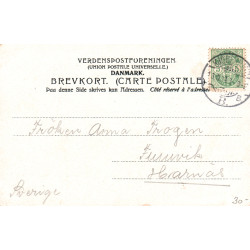 VERDENSPOSTFORENINGEN
(UNION POSTALE UNIVERSELLE.)
DANMARK.
BREVKORT. (CARTE POSTALE)
Paa denne Side skrives kun Adressen. Côté réservé à l'adresse
Fröken Anna Frogen
Furuvik
Harnäs
Sverige
30-